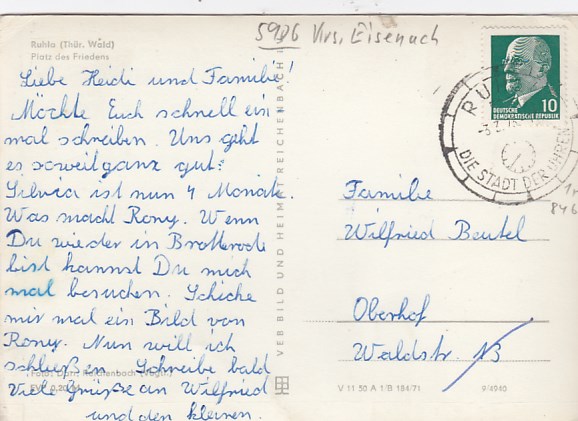 5906 Krs. Eisenach
Ruhla (Thür. Wald)
Platz des Friedens
Liebe Heidi und Familie!
Möchte Euch schnell ein
mal schreiben. Uns geht
es soweit ganz gut.
Silvia ist nun 4 Monate.
Was macht Rony. Wenn
Du wieder in Brotterode
bist kannst Du mich
mal besuchen. Schicke
mir mal ein Bild von
Rony. Nun will ich
schließen. Schreibe bald
Viele Grüsse an Wilfried
und den kleinen.
Reichenbach (Vogtl.)
VEB BILD UND HEIMAT REICHENBACH
10
DEUTSCHE
DEMOKRATISCHE REPUBLIK
DIE STADT DER UHREN
Familie
Wilfried Beutel
Oberhof
Waldstr. 13
V 11 50 A 1/B 184/71 9/4940